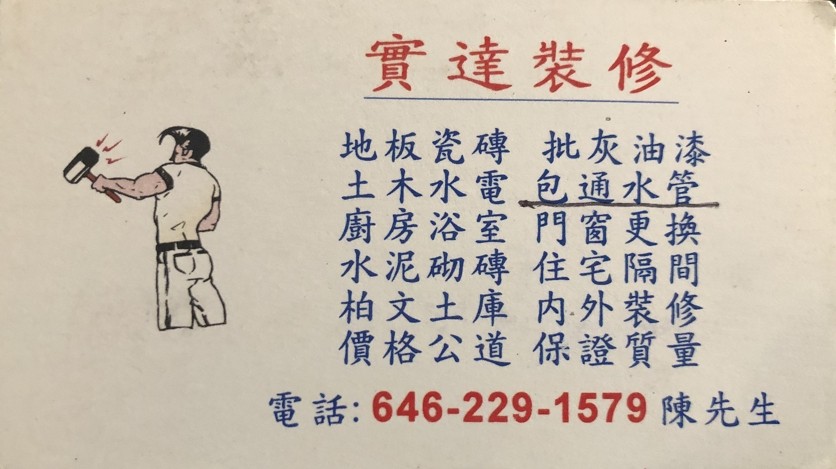 實達裝修
地板瓷磚 批灰油漆
土木水電 包通水管
廚房浴室 門窗更換
水泥砌磚 住宅隔間
柏文土庫 內外裝修
價格公道 保證質量
電話: 646-229-1579 陳先生